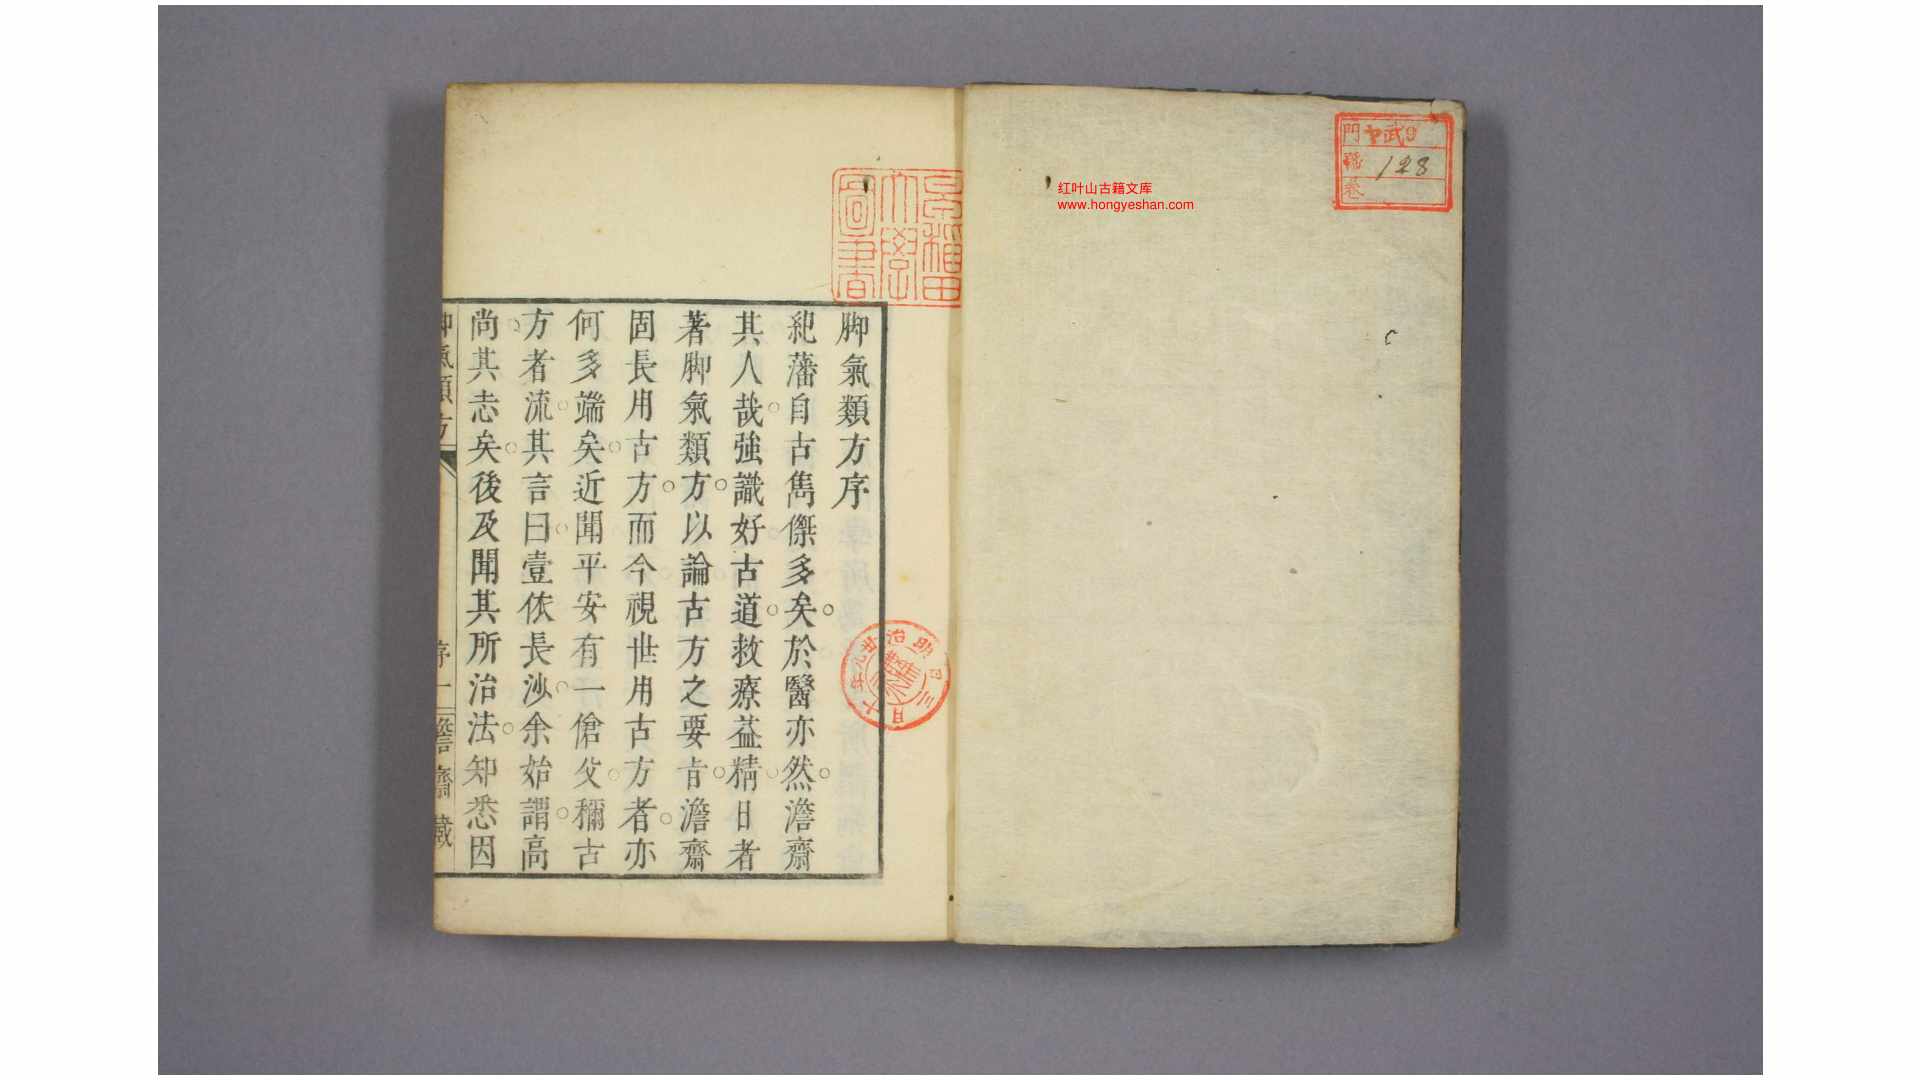 門 ヤ武9
號 128
卷
红叶山古籍文库
www.hongyeshan.com
早稲田
大學
圖書
脚氣類方序
紀藩自古雋傑多矣。於醫亦然。澹齋
其人哉。強識好古道。救療益精。日者
著脚氣類方。以論古方之要旨。澹齋
固長用古方。而今視世用古方者。亦
何多端矣。近聞平安有一傖父。稱古
方者流。其言曰。壹依長沙。余始謂。高
尚其志矣。後及聞其所治法。知悉因
脚氣類方
序
一
澹齋藏